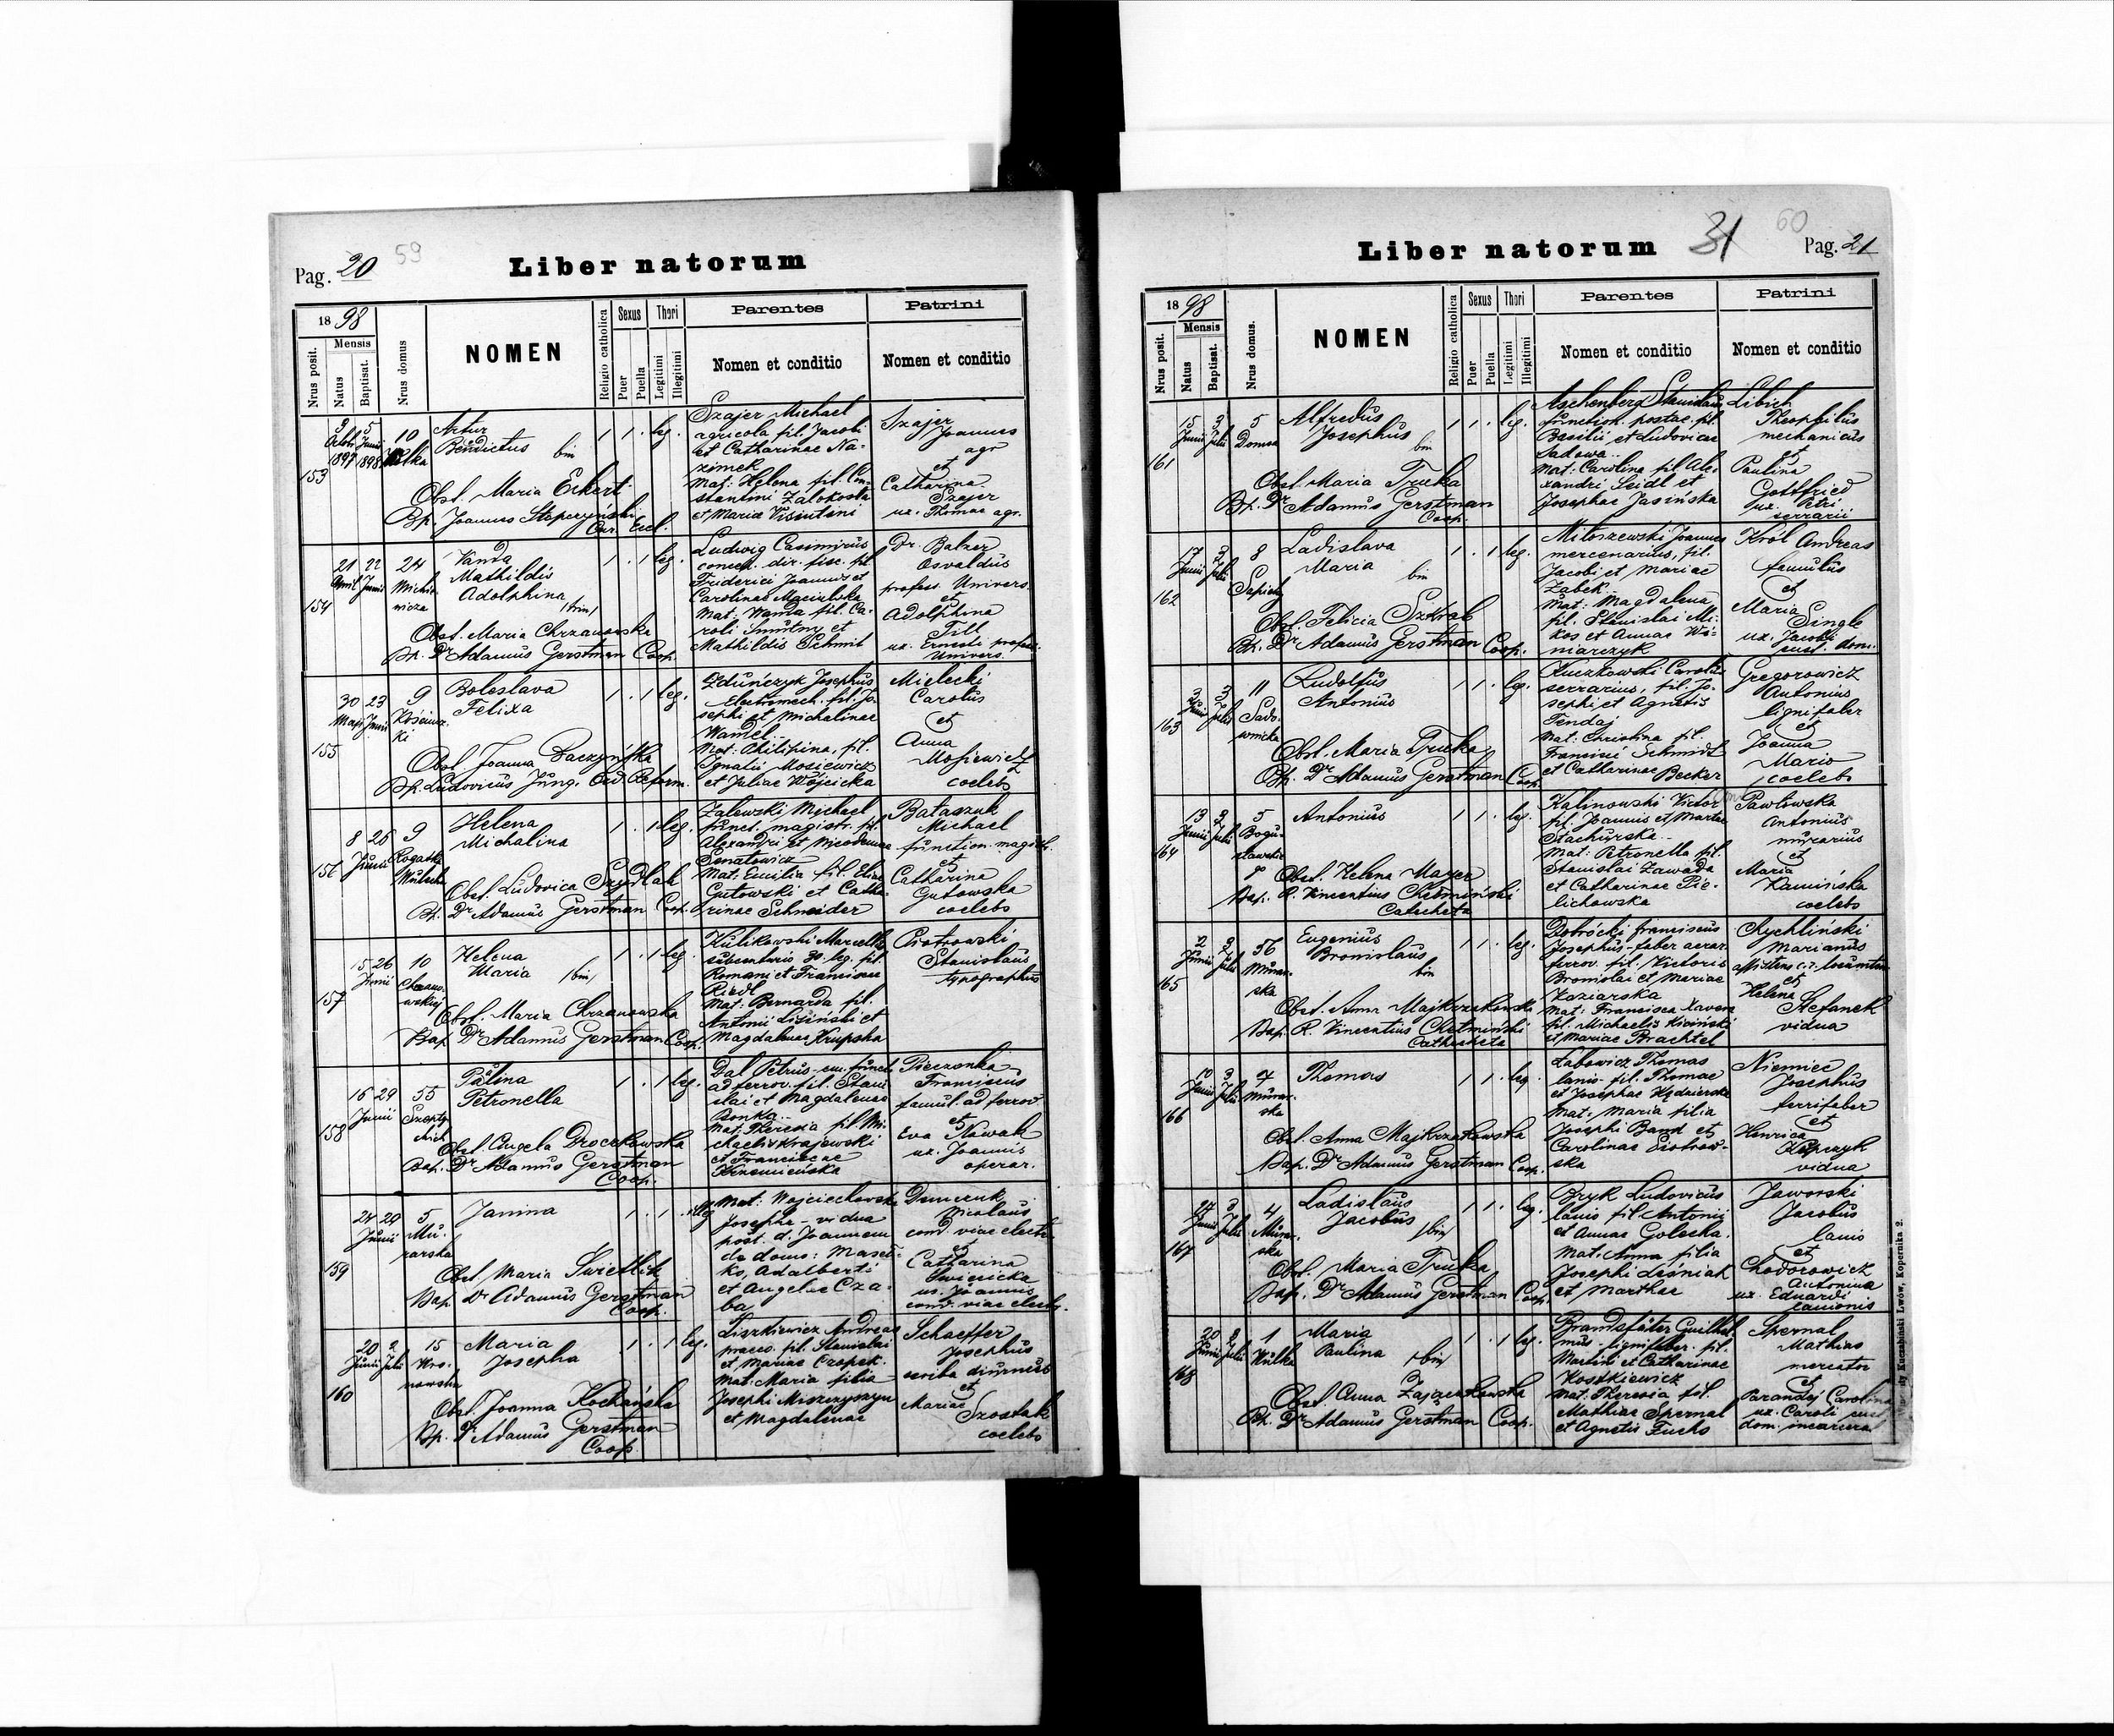 Pag. 20
59
Liber natorum
18 98
Nrus posit.
Mensis
Natus
Baptisat.
Nrus domus
NOMEN
Religio catholica
Sexus
Puer
Puella
Thori
Legitimi
Illegitimi
Parentes
Nomen et conditio
Patrini
Nomen et conditio
153
10
Artur
Benedictus
bin
Obst. Maria Eckert
Bp. Joannes
1 1 . leg.
Szajer Michael
agricola fil. Jacobi
et Catharinae Na-
zimek
Mat: Helena fil. Con-
stantini Zalokosta
et Mariae Visintini
Szajer
Joannes
agr
et
Catharina
Szajer
ux. Thomae agr.
154
21 22
April Junii
24
Vanda
Mathildis
Adolphina
Obst. Maria Chrzanowska
Bp. Dr Adamus Gerstman Coop.
1 . 1 leg.
Ludwig Casimirus
dir. fisc. fil.
Friderici Joannis et
Carolinae
Mat: Wanda fil. Ca-
roli Smutny et
Mathildis Schmit
Dr. Balzer
Osvaldus
profess. Univers.
et
Adolphina
Till
ux. Ernesti profess.
Univers.
155
30 23
Maji Junii
9
Boleslava
Felixa
Obst. Joanna Baczyńska
Bp. Ludovicus Jung. Ord. Reform.
1 . 1 leg.
Zduńczyk Josephus
electromech. fil. Jo-
sephi et Michalinae
Wandel
Mat: Philipina, fil.
Ignatii Mosiewicz
et Juliae Wójcicka
Mielecki
Carolus
et
Anna
Mosiewicz
coelebs
156
8 26
Junii
9
Helena
Michalina
Obst. Ludovica Szydlak
Bp. Dr Adamus Gerstman Coop.
1 . 1 leg.
Zalewski Michael
funct. magistr. fil.
Alexandri et Nicodemae
Senatowicz
Mat: Emilia fil. Eliae
Gutowski et Catha-
rinae Schneider
Bataszuk
Michael
function. magistr.
et
Catharina
Gutowska
coelebs
157
15 26
Junii
10
Helena
Maria
bin
Obst. Maria Chrzanowska
Bap. Dr Adamus Gerstman Coop.
1 . 1 leg.
Kulikowski Marcellus
30. leg. fil.
Romani et Franciscae
Riedl
Mat: Bernarda fil.
Antonii Lisiński et
Magdalenae Krupska
Piotrowski
Stanislaus
typographus
158
16 29
Junii
55
Paulina
Petronella
Obst. Angela Droczkowska
Bap. Dr Adamus Gerstman
Coop.
1 . 1 leg.
Dal Petrus
ad ferrov. fil. Stani-
slai et Magdalenae
Bonka
Mat: Theresia fil. Mi-
chaelis Krajewski
et Franciscae
Pieczonka
Franciscus
famul. ad ferrov.
et
Eva Nowak
ux. Joannis
operar.
159
24 29
Junii
5
Mu-
rarska
Janina
Obst. Maria Swietlik
Bap. Dr Adamus Gerstman
Coop.
Mat: Wojciechowska
Josepha - vidua
post. d. Joannem
de domo: Masel-
ko, Adalberti
et Angelae Cza-
ba
Demczuk
Nicolaus
cond. viae electr.
et
Catharina
Swięcicka
ux. Joannis
cond. viae electr.
160
20 2
Junii Julii
15
Maria
Josepha
Obst. Joanna Kochańska
Bp. Dr Adamus Gerstman
Coop.
1 . 1 leg.
Liszkiewicz Andreas
praeco. fil. Stanislai
et Mariae Czopek.
Mat: Maria filia
Josephi Miszczyszyn
et Magdalenae
Schaeffer
Josephus
scriba diurnus
et
Mariae
Szostak
coelebs
31
60
Pag. 21
Liber natorum
18 98
Nrus posit.
Mensis
Natus
Baptisat.
Nrus domus.
NOMEN
Religio catholica
Sexus
Puer
Puella
Thori
Legitimi
Illegitimi
Parentes
Nomen et conditio
Patrini
Nomen et conditio
161
15 3
Junii Julii
5
Alfredus
Josephus
bin
Obst. Maria Truka
Bp. Dr Adamus Gerstman
Coop.
1 1 . leg.
Aschenberg Stanislaus
function. postae. fil.
Basilii et Ludovicae
Sadowa
Mat: Carolina fil. Ale-
xandri Seidl et
Josephae Jasińska
Libich
Theophilus
mechanicus
et
Paulina
Gottfried
ux. Petri
serrarii
162
17 3
Junii Julii
8
Sapiehy
Ladislava
Maria
bin
Obst. Felicia
Bp. Dr Adamus Gerstman Coop.
1 . 1 leg.
Mitoszewski Joannes
mercenarius, fil.
Jacobi et Mariae
Zabek
Mat: Magdalena
fil. Stanislai Mi-
kos et Annae Wi-
niarczyk
Król Andreas
famulus
et
Maria
Single
ux. Jacobi
cust. dom.
163
3 3
Junii Julii
11
Sado-
wnicka
Rudolfus
Antonius
Obst. Maria Truka
Bp. Dr Adamus Gerstman Coop.
1 1 . leg.
Kuczkowski Carolus
serrarius, fil. Jo-
sephi et Agnetis
Tendaj
Mat: Christina fil.
Francisci Schmidt
et Catharinae Becker
Gregorowicz
Antonius
lignifaber
et
Joanna
Mario
coelebs
164
13 3
Junii Julii
5
Bogu-
sławskie-
go
Antonius
Obst. Helena Mayer
Bap. R. Vincentius Chełmiński
Catecheta
1 1 . leg.
Kalinowski Victor
fil. Joannis et Marthae
Stachurska
Mat: Petronella fil.
Stanislai Zawada
et Catharinae Pie-
lichowska
Pawłowska
Antonius
murarius
et
Maria
Kamińska
coelebs
165
2 3
Junii Julii
56
Murar-
ska
Eugenius
Bronislaus
bin
Obst. Anna Majkrzakowska
Bap. R. Vincentius Chełmiński
Catecheta
1 1 . leg.
Dobrócki Franciscus
Josephus - faber aerar.
ferrov. fil. Victoris
Bronislai et Mariae
Koziarska
Mat: Francisca Xavera
fil. Michaelis Kiciński
et Mariae Brachtel
Chychliński
Marianus
assistens c.r. locumten.
et
Helena
Stefanek
vidua
166
10 3
Junii Julii
Murar-
ska
Thomas
Obst. Anna Majkrzakowska
Bap. Dr Adamus Gerstman Coop.
1 1 . leg.
Labowicz Thomas
lanio. fil. Thomae
et Josephae Kędzierska
Mat: Maria filia
Josephi Band et
Carolinae Piotrow-
ska
Niemiec
Josephus
ferrifaber
et
Henrica
vidua
167
27 3
Junii Julii
4
Murar-
ska
Ladislaus
Jacobus
bin
Obst. Maria Truka
Bap. Dr Adamus Gerstman Coop.
1 1 . leg.
Bryk Ludovicus
lanio fil. Antonii
et Annae Goleska.
Mat. Anna filia
Josephi Leśniak
et Marthae
Jaworski
Jacobus
lanio
et
Chodorowicz
Antonina
ux. Eduardi
lanionis
168
20 2
Junii Julii
1
Wulka
Maria
Paulina
bin
Obst. Anna Zajączkowska
Bp. Dr Adamus Gerstman Coop.
1 . 1 leg.
Brandstäter Guilhel-
mus lignifaber. fil.
Martini et Catharinae
Kostkiewicz
Mat: Theresia fil.
Mathiae Spernal
et Agnetis Fuchs
Spernal
Mathias
mercator
et
Parandej Carolina
ux. Caroli cust.
dom.
Kuczabiński Lwów, Kopernika 2.